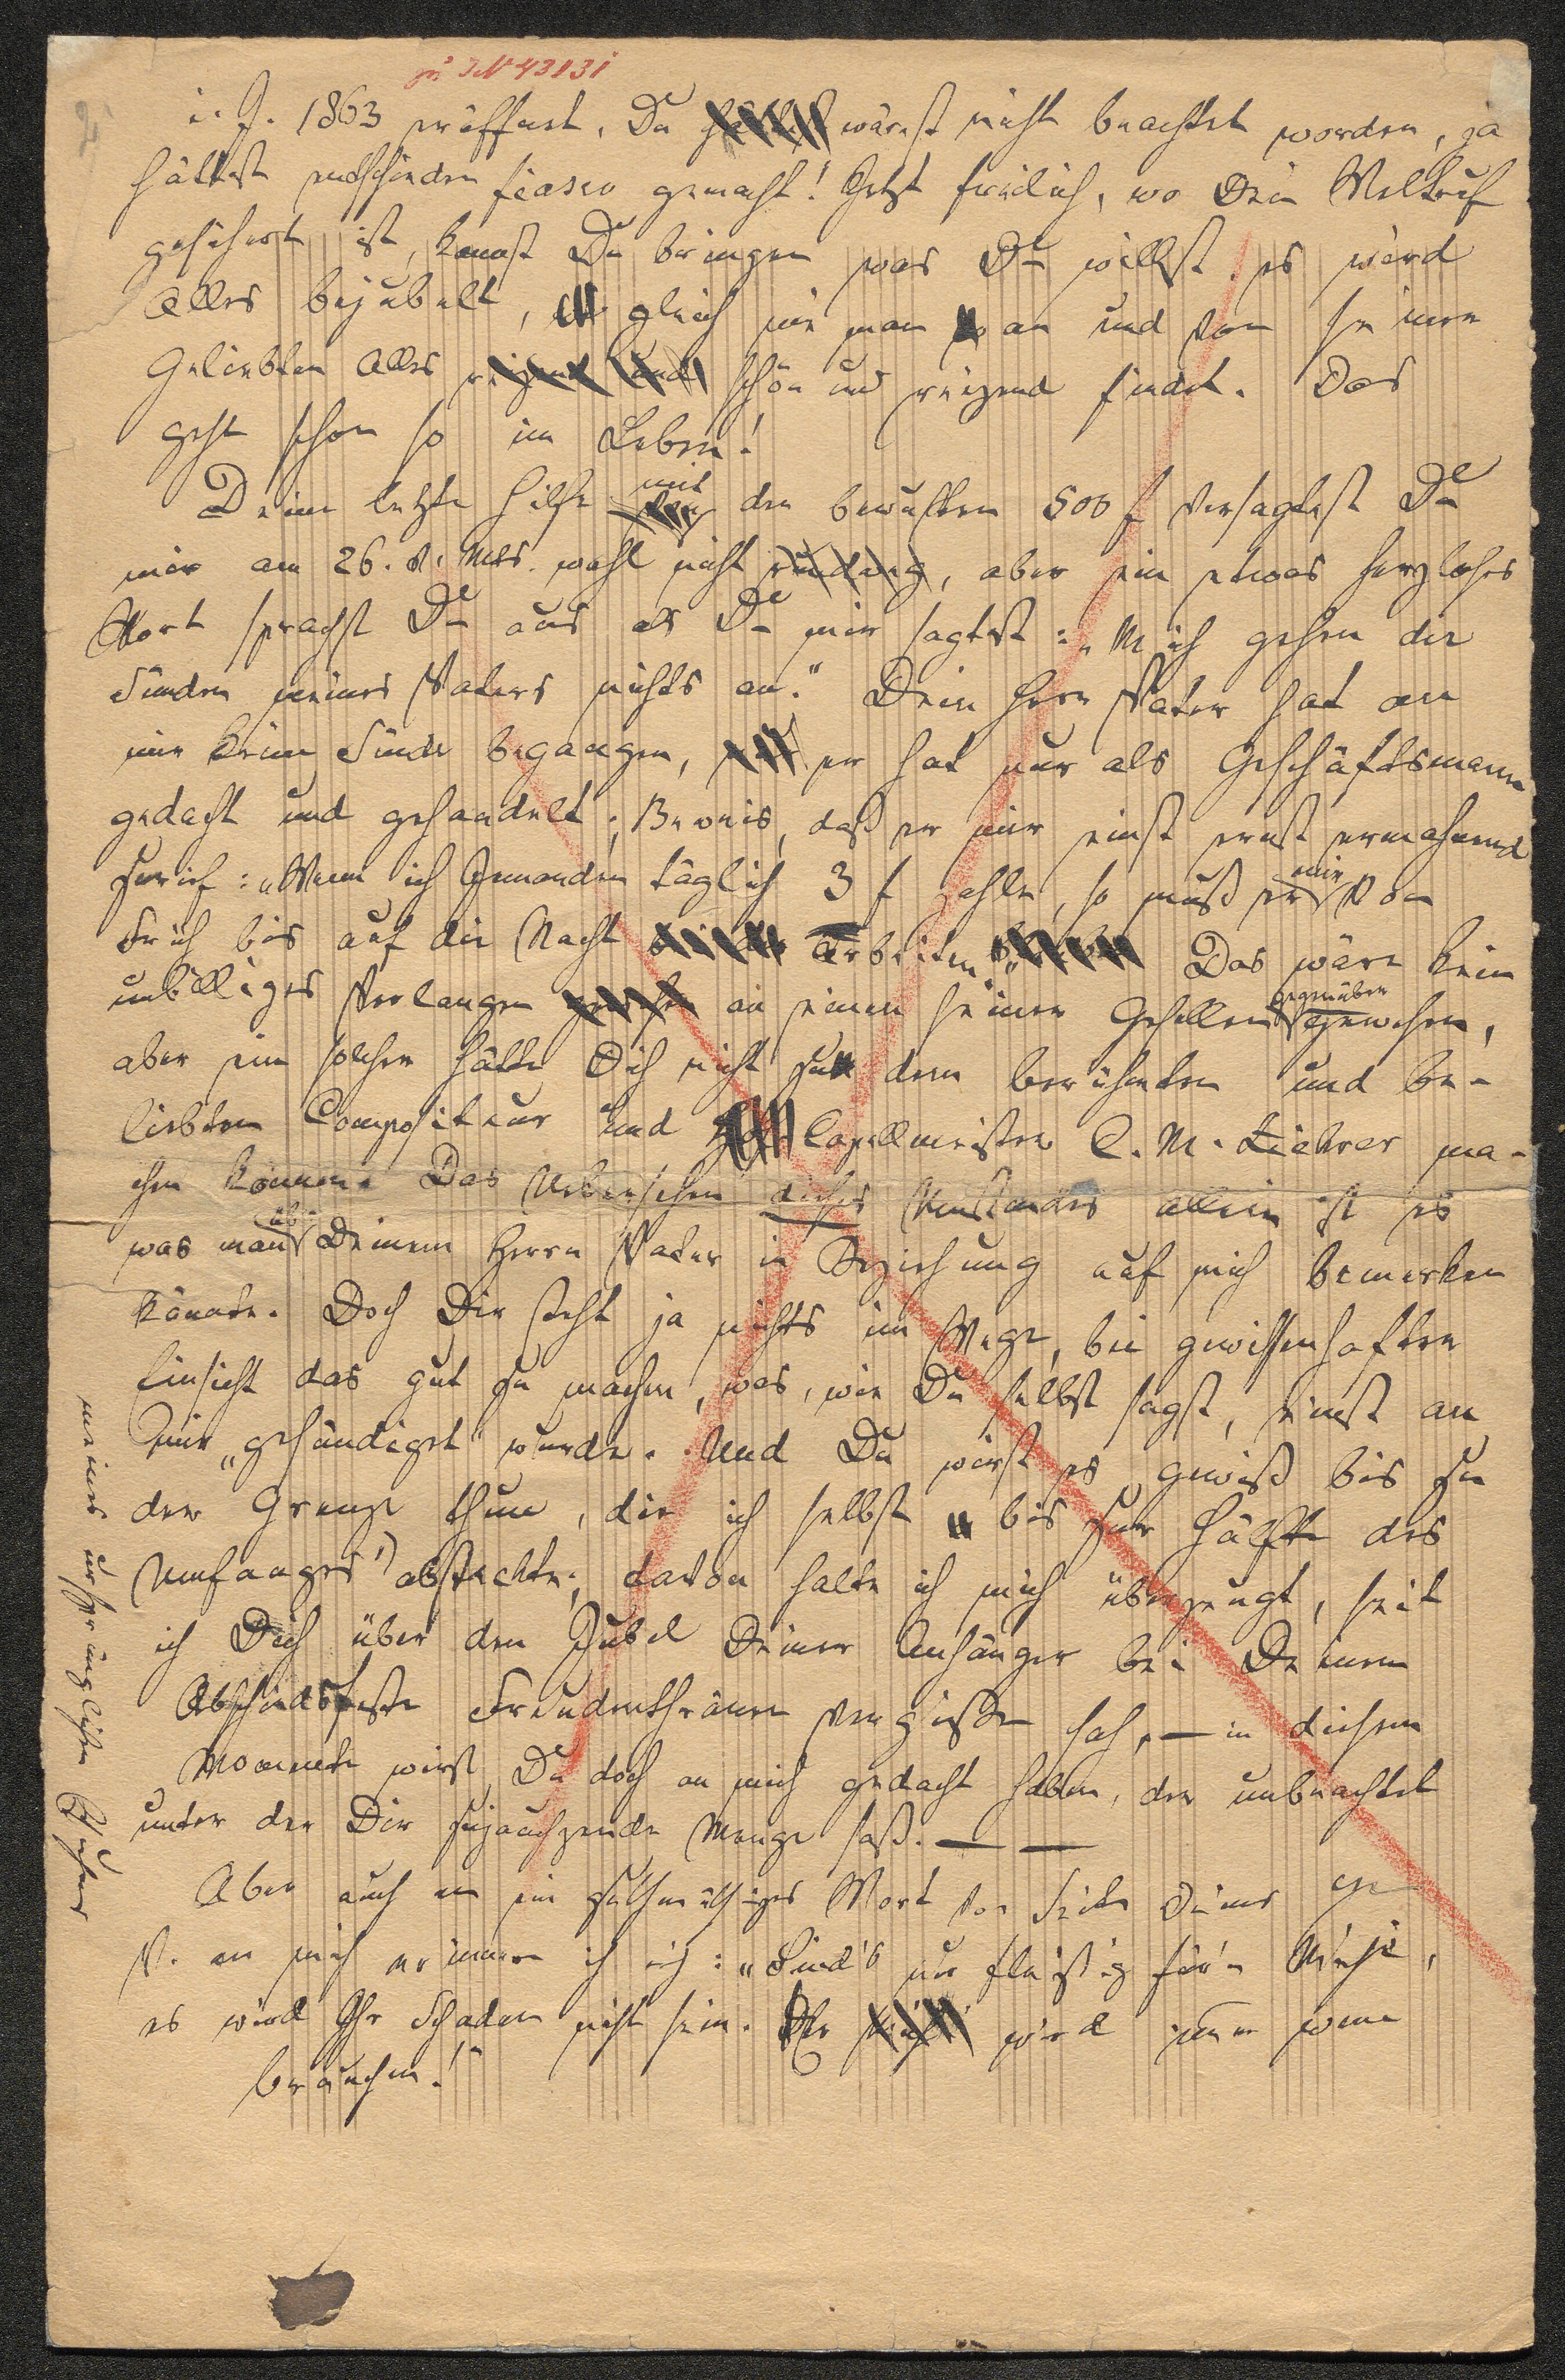 zu IN 43131
i. J. 1863 eröffnet, Du wärest nicht beachtet worden, ja
hättest entschieden fiasco gemacht! Jetzt freilich, wo Dein Weltruf
gesichert ist, kannst Du bringen was Du willst, es wird
Alles bejubelt, gleich wie man an und von seiner
Geliebten Alles reizend und schön und reizend findet. Das
geht schon so im Leben!
Deine letzte Hilfe mit den bewußten 500 f versagtest Du
mir am 26. v. Mts. wohl nicht, aber ein etwas herzloses
Wort sprachst Du aus als Du mir sagtest: „Mich gehen die
Sünden meines Vaters nichts an." Dein Herr Vater hat an
mir keine Sünde begangen, er hat nur als Geschäftsmann
gedacht und gehandelt; Beweis, daß er mir einst ernst ermahnend
zurief: „Wenn ich Jemanden täglich 3 f zahle, so muß er mir von
Früh bis auf die Nacht arbeiten." Das wäre kein
unbilliges Verlangen an einen seiner Gesellen gegenüber gewesen,
aber ein solcher hätte Dich nicht zu dem berühmten und be-
liebten Compositeur und Capellmeister C. M. Ziehrer ma-
chen können. Das Uebersehen dieses Umstandes allein ist es
was man Deinem Herrn Vater in Beziehung auf mich bemerken
könnte. Doch Dir steht ja nichts im Wege, bei gewissenhafter
Einsicht das gut zu machen, was, wie Du selbst sagst, einst an
mir „gesündiget" wurde. Und Du wirst es gewiß bis zu
der Grenze thun, die ich selbst „bis zur Hälfte des
Umfanges" absteckte; davon halte ich mich überzeugt, seit
ich Dich über den Jubel Deiner Anhänger bei Deinem
Abschiedsfeste Freudenthränen vergießen sah, — in diesem
Momente wirst Du doch an mich gedacht haben, der unbeachtet
unter der Dir zujauchzende Menge saß. — —
Aber auch an ein gutmüthiges Wort von Seite Deines
V. an mich erinnere ich: „Sind's nur fleißig für'n Michi,
es wird Ihr Schaden nicht sein. Er wird
brauchen!"
meines ursprünglichen